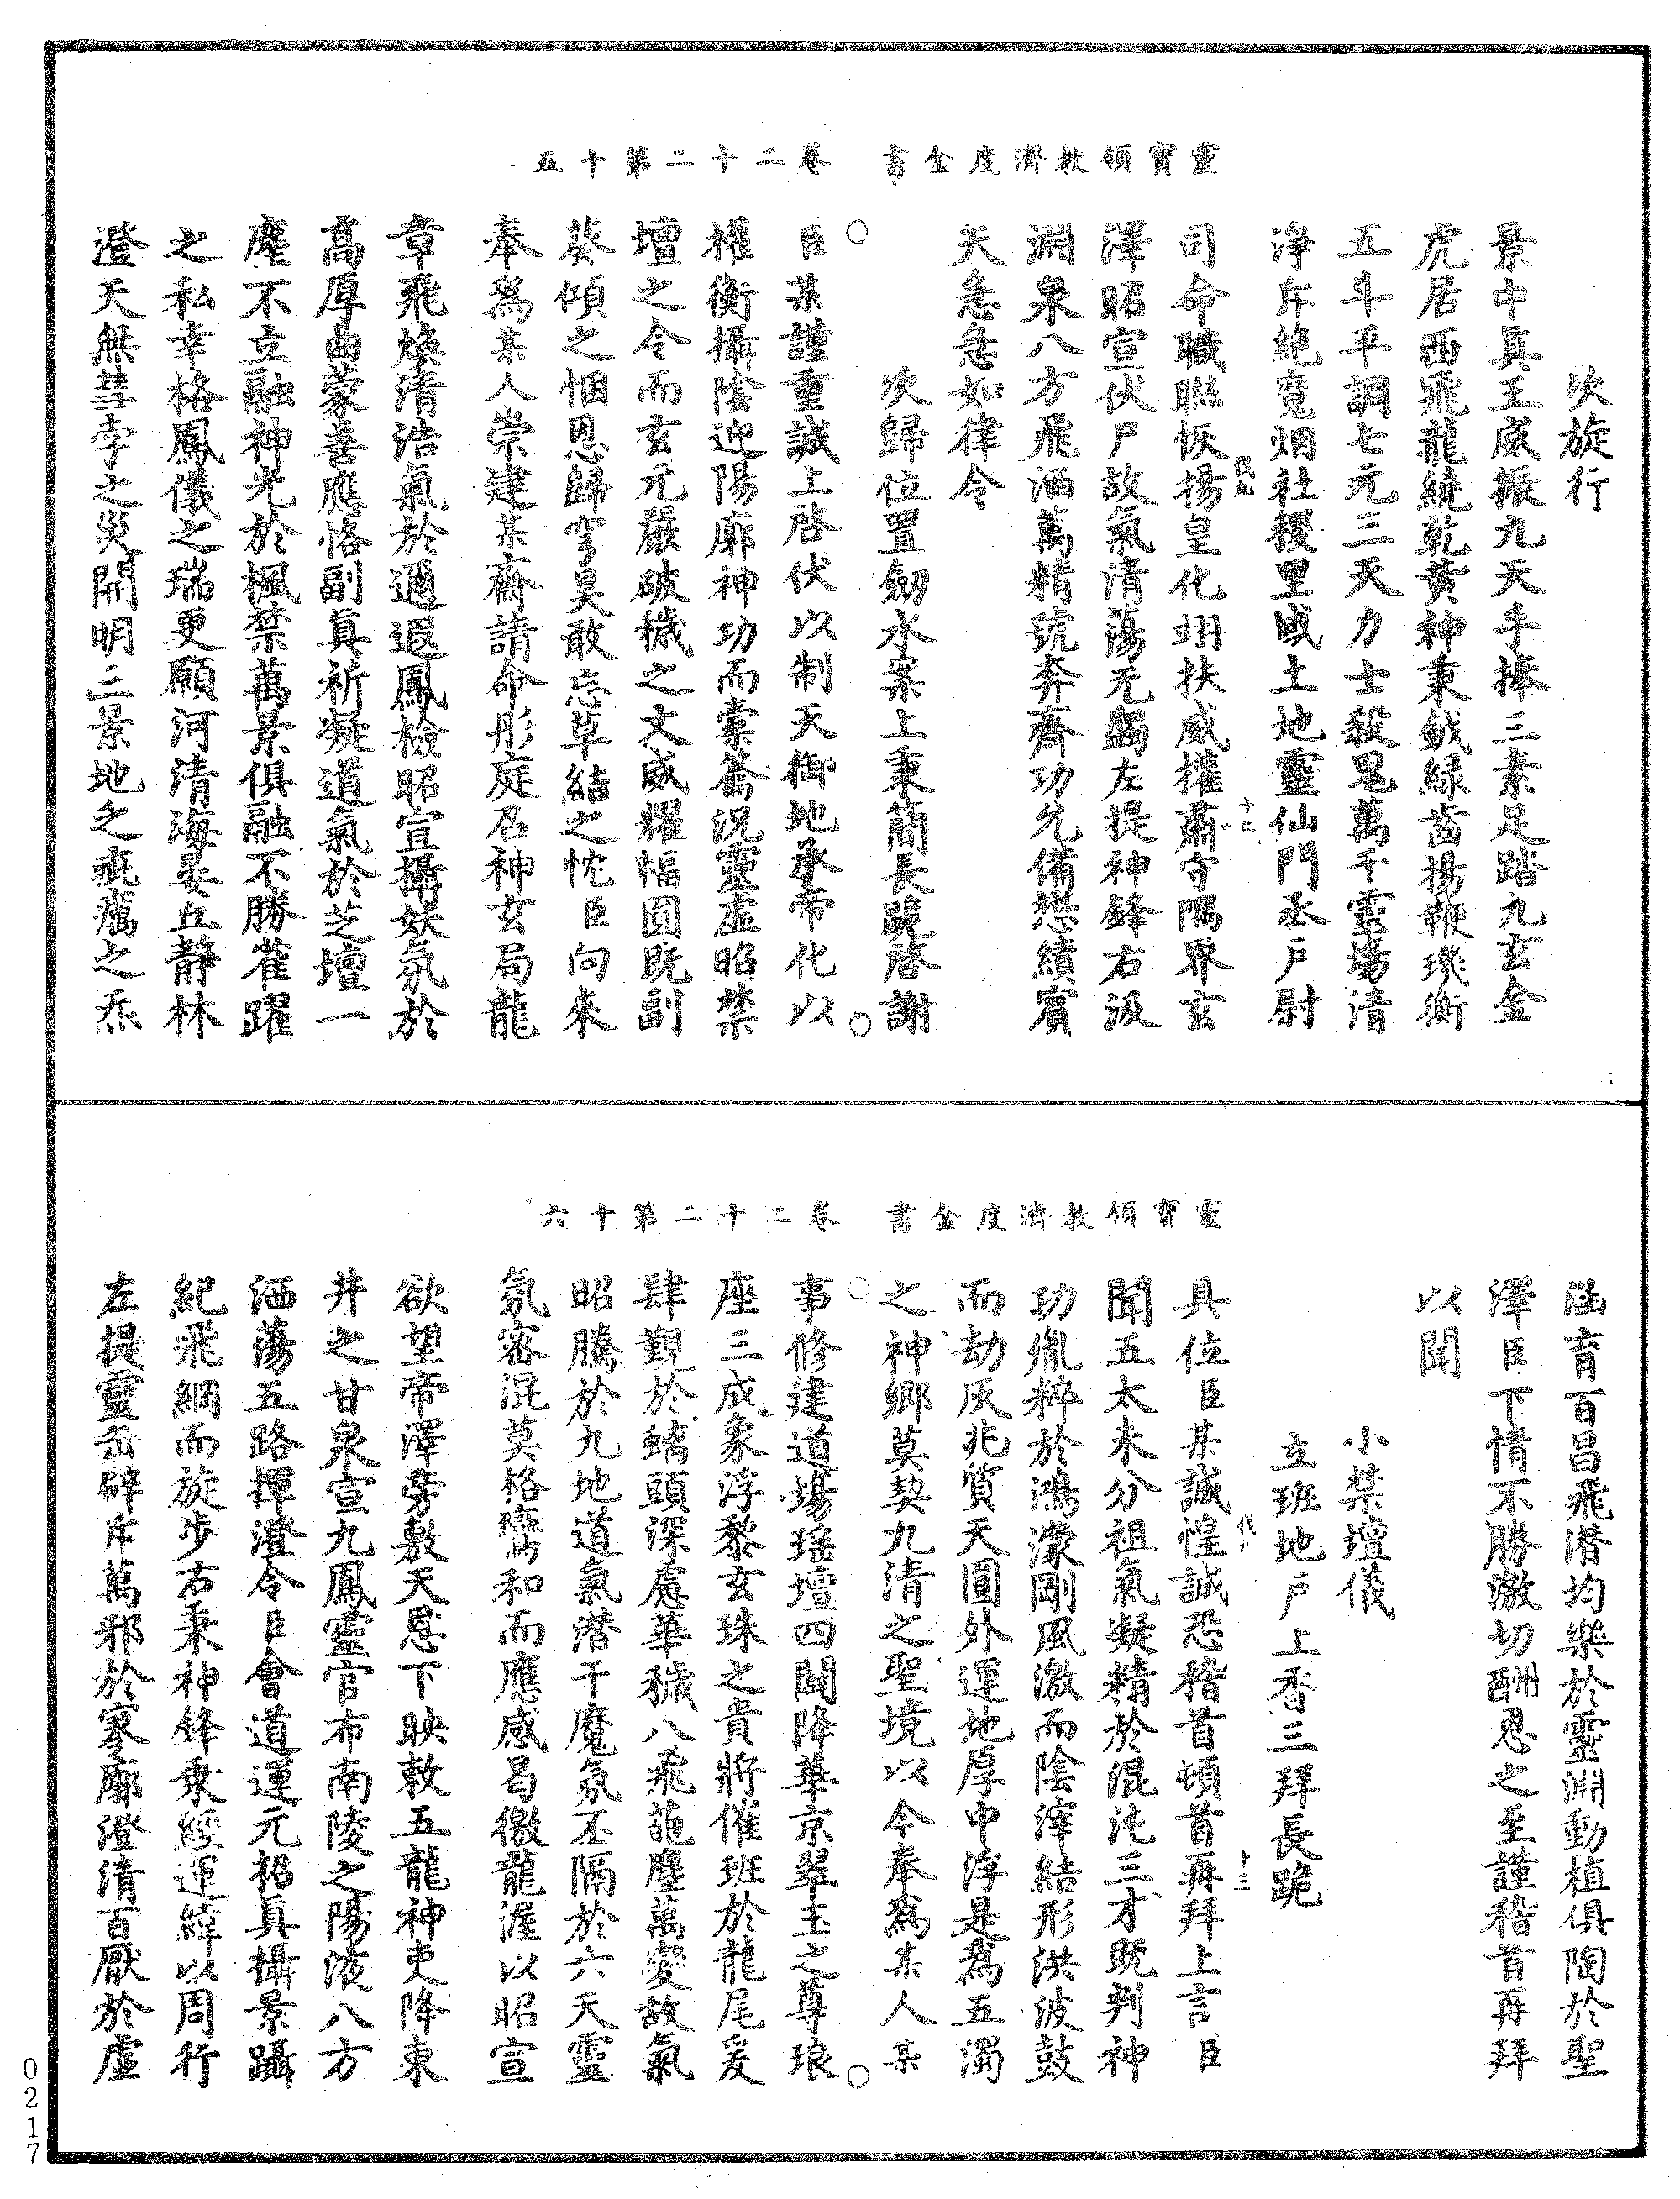 靈寶領教濟度金書　卷二十二第十五
次旋行
景中真王威振九天手捧三素足踏九玄金
虎居西飛龍繞乾黃神秉鉞綠齒揚鞭璣衡
五斗平調七元三天力士殺鬼萬千靈場清
淨斥絕寃烟社稷里域土地靈仙門丞戶尉
司命職聮恢揚皇化翊扶威權肅守隅界玄
澤昭宣伏尸故氣清蕩无蠲左提神鋒右汲
淵泉八方飛洒萬精號奔齊功允備懋績賓
天急急如律令
次歸位置劒水案上秉簡長跪啓謝
臣某謹重誠上啓伏以制天御地承帝化以
權衡攝陰迎陽廓神功而槖籥況靈虛昭禁
壇之令而玄元嚴破穢之文威耀幅圓既副
葵傾之悃恩歸穹昊敢忘草結之忱臣向來
奉為某人崇建某齋請命彤庭召神玄局龍
章飛煥清浩氣於遞遐鳳檢昭宣攝妖氛於
高厚曲蒙善應恪副真祈凝道氣於芝壇一
塵不立融神光於楓禁萬景俱融不勝雀躍
之私幸格鳳儀之瑞更願河清海晏丘靜林
澄天無彗孛之災開明三景地乏疵癘之炁
靈寶領教濟度金書　卷二十二第十六
涵育百昌飛潛均樂於靈淵動植俱陶於聖
澤臣下情不勝激切酬恩之至謹稽首再拜
以聞
小禁壇儀
立班地戶上香三拜長跪
具位臣某誠惶誠恐稽首頓首再拜上言臣
聞五太未分祖氣凝精於混沌三才既判神
功胤粹於鴻濛剛風激而陰滓結形洪波鼓
而劫灰兆質天圓外運地厚中浮是為五濁
之神鄉莫契九清之聖境以今奉為某人某
事修建道場瑤壇四闢降華京翠玉之尊琅
座三成象浮黎玄珠之貴將催班於龍尾爰
肆覲於螭頭深慮華穢八飛葩塵萬變故氣
昭騰於九地道氣潛干魔氛丕隔於六天靈
氛密混莫格鸞和而應感曷徼龍渥以昭宣
欲望帝澤旁敷天恩下映敕五龍神吏降東
井之甘泉宣九鳳靈官布南陵之陽液八方
洒蕩五路揮澄令臣會道運元招真攝景躡
紀飛綱而旋步右秉神鋒乘經運緯以周行
左提靈岳辟斥萬邪於寥廓澄清百厭於虛
0217